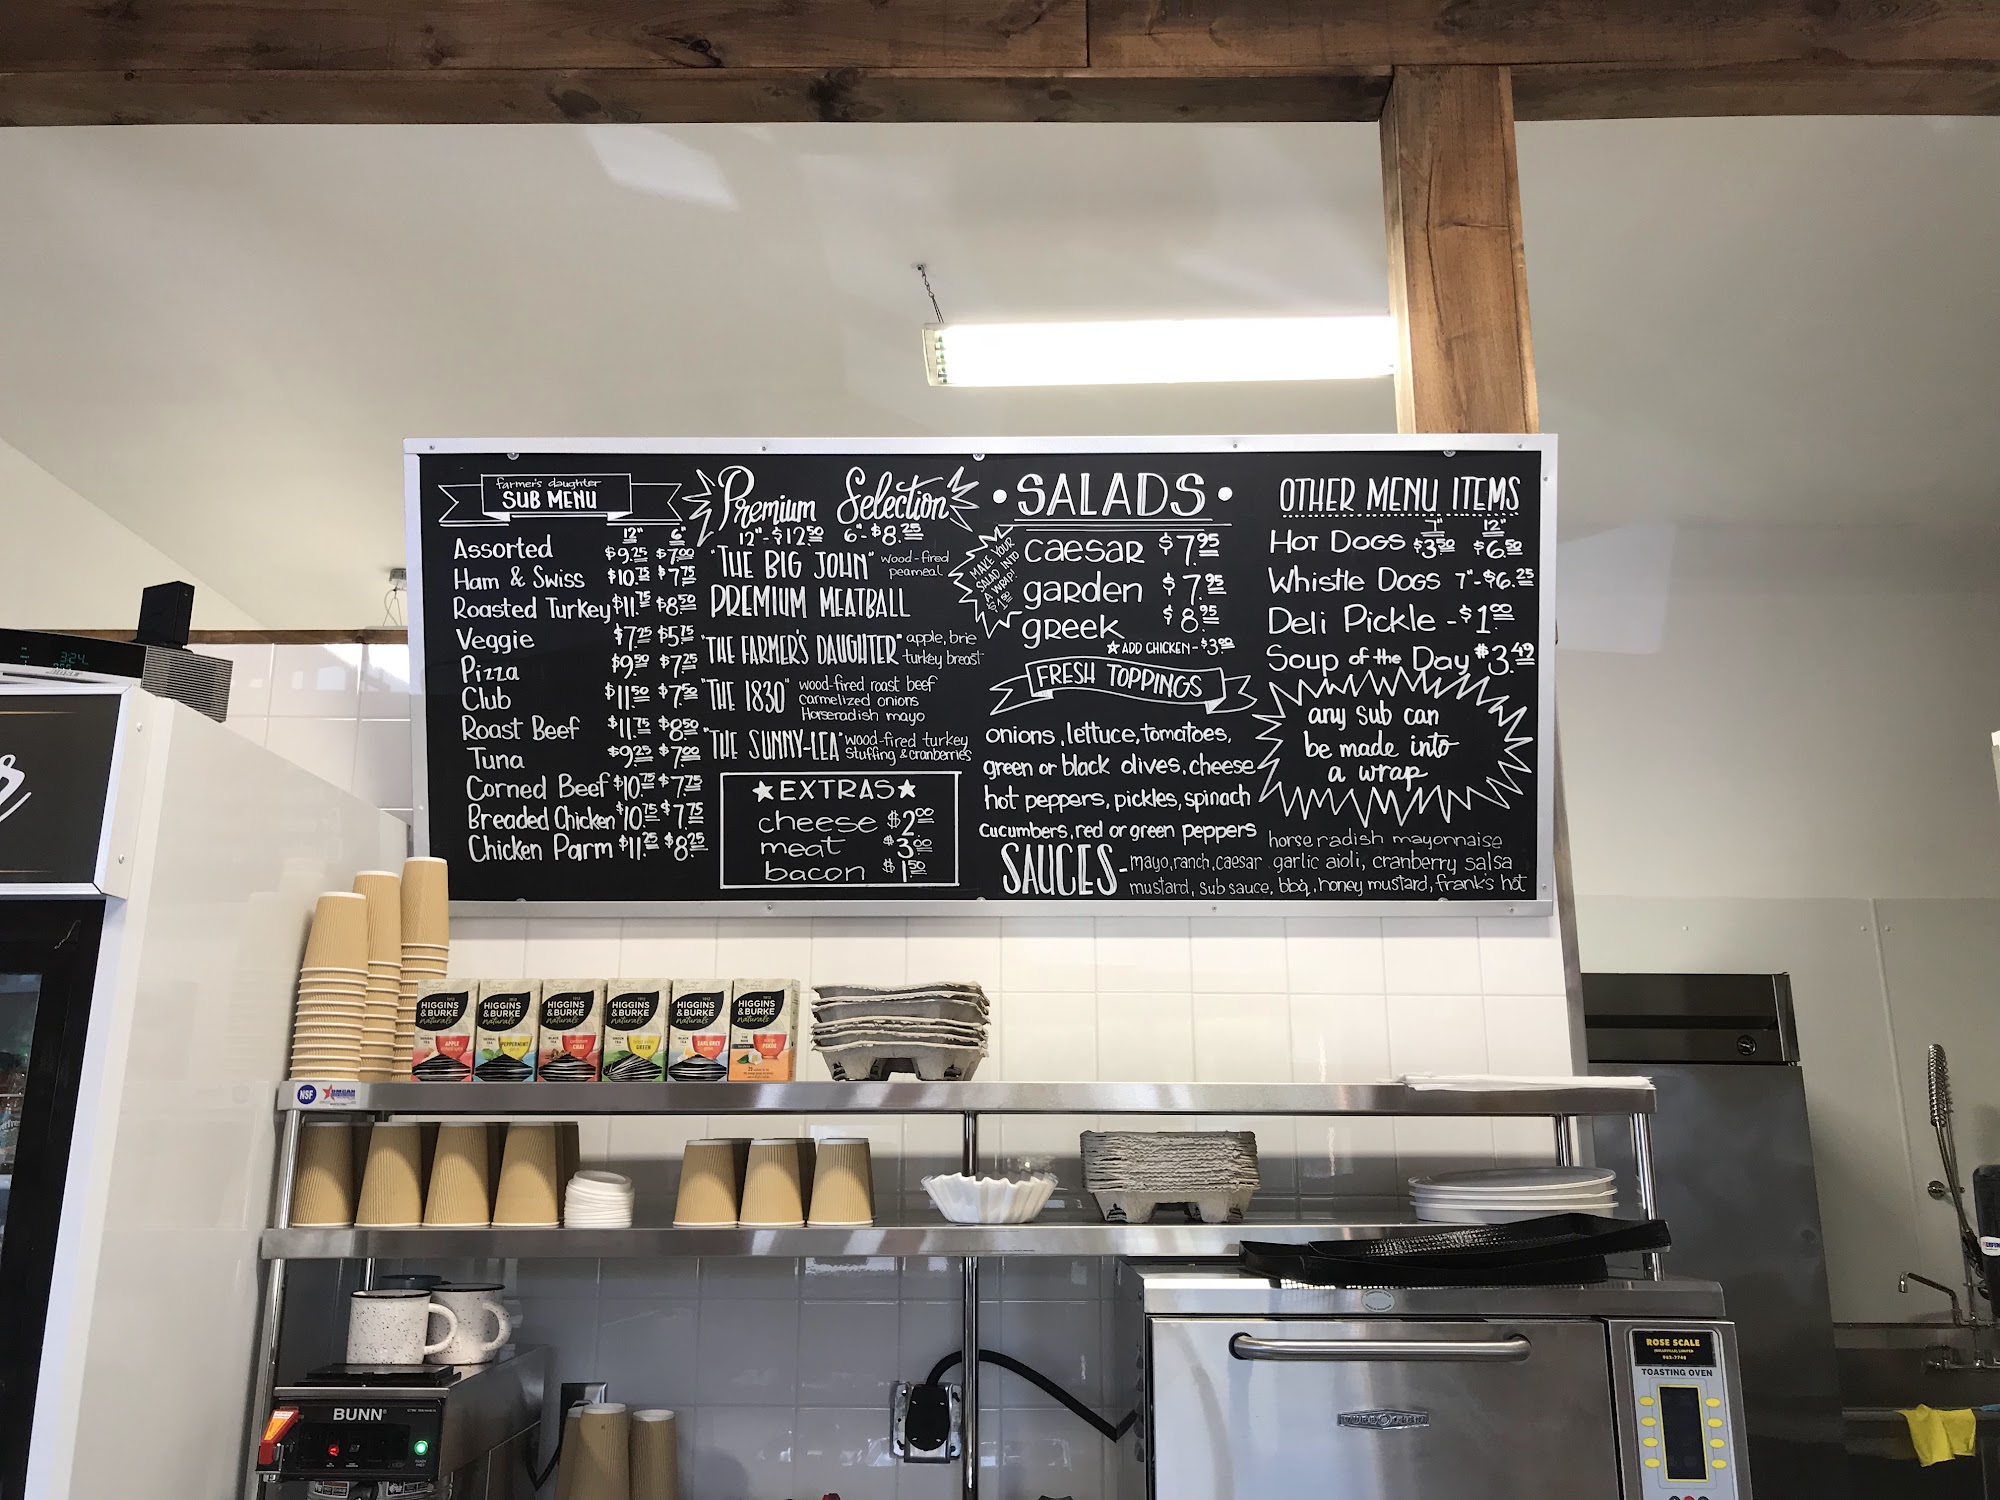 farmer's daughter
SUB MENU
12" 6"
Assorted $9.25 $7.00
Ham & Swiss $10.75 $7.75
Roasted Turkey $11.75 $8.50
Veggie $7.25 $5.75
Pizza $9.50 $7.25
Club $11.50 $7.50
Roast Beef $11.75 $8.50
Tuna $9.25 $7.00
Corned Beef $10.75 $7.75
Breaded Chicken $10.75 $7.75
Chicken Parm $11.25 $8.25
Premium Selection
12"-$12.50 6"-$8.25
"THE BIG JOHN" wood-fired
peameal
PREMIUM MEATBALL
"THE FARMER'S DAUGHTER" apple, brie
turkey breast
"THE 1830" wood-fired roast beef
carmelized onions
Horseradish mayo
"THE SUNNY-LEA" wood-fired turkey
stuffing & cranberries
★EXTRAS★
cheese $2.00
meat $3.00
bacon $1.50
•SALADS•
MAKE YOUR
SALAD INTO
A WRAP!
$1.00
caesar $7.95
garden $7.95
greek $8.95
★ADD CHICKEN-$3.00
FRESH TOPPINGS
onions, lettuce, tomatoes,
green or black olives, cheese
hot peppers, pickles, spinach
cucumbers, red or green peppers
SAUCES - mayo, ranch, caesar garlic aioli, cranberry salsa
horseradish mayonnaise
mustard, sub sauce, bbq, honey mustard, frank's hot
OTHER MENU ITEMS
7" 12"
HOT DOGS $3.50 $6.50
Whistle Dogs 7"-$6.25
Deli Pickle -$1.00
Soup of the Day $3.49
any sub can
be made into
a wrap
3:24
HIGGINS
&BURKE
naturals
APPLE
HIGGINS
&BURKE
naturals
PEPPERMINT
HIGGINS
&BURKE
naturals
CHAI
HIGGINS
&BURKE
naturals
GREEN
HIGGINS
&BURKE
naturals
EARL GREY
HIGGINS
&BURKE
naturals
PEKOE
NSF
BUNN
ROSE SCALE
TOASTING OVEN